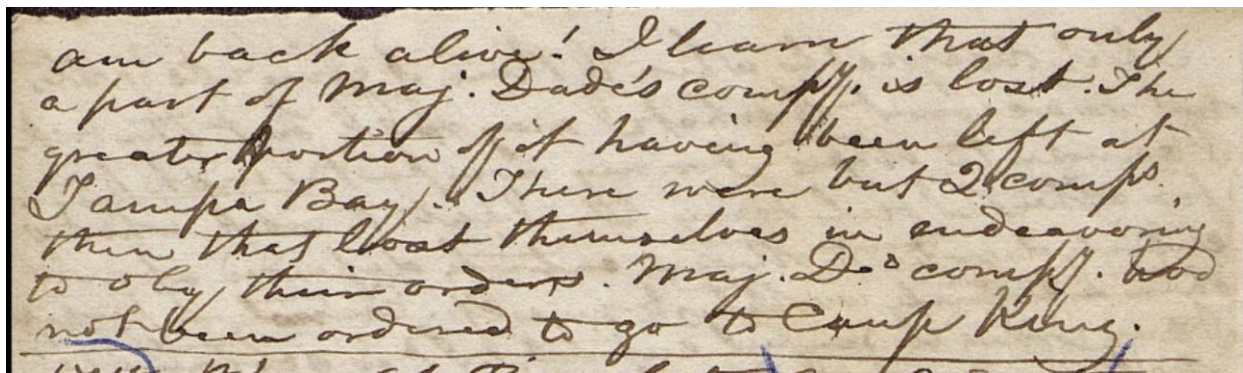 am back alive! I learn that only
a part of Maj. Dade's compy. is lost. The
greater portion of it having been left at
Tampa Bay. There were but 2 comps.
then that lost themselves in endeavoring
to obey their orders. Maj. D.'s compy. had
not been ordered to go to Camp King.